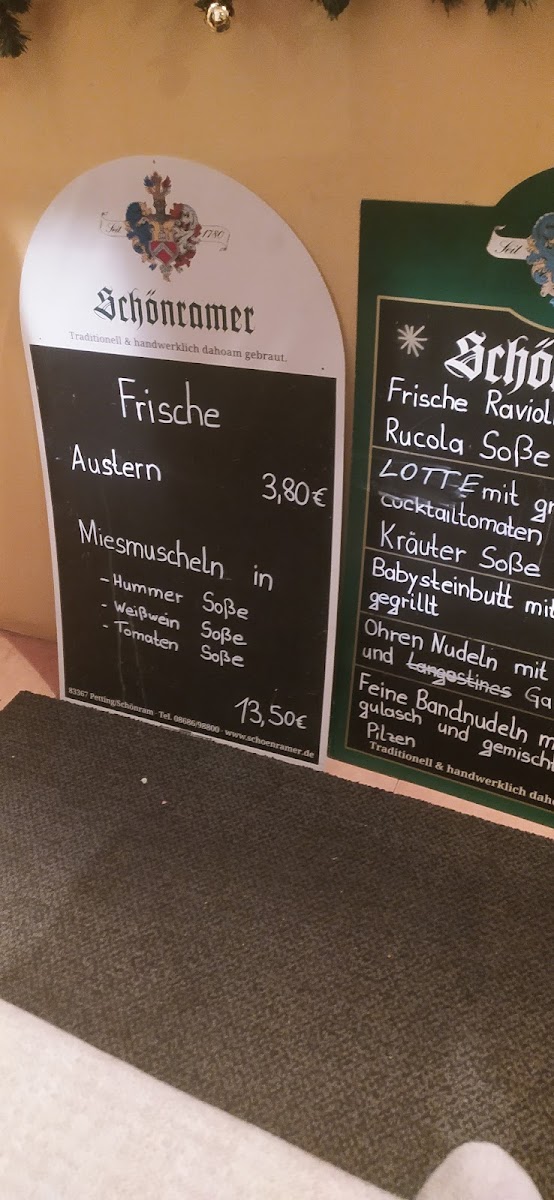 Seit 1780
Schönramer
Traditionell & handwerklich dahoam gebraut.
Frische
Austern
3,80€
Miesmuscheln in
- Hummer Soße
- Weißwein Soße
- Tomaten Soße
13,50€
83367 Petting/Schönram · Tel. 08686/98800 · www.schoenramer.de
Seit
Schö
Frische Raviol
Rucola Soße
LOTTE mit gr
Cocktailtomaten
Kräuter Soße
Babysteinbutt mit
gegrillt
Ohren Nudeln mit
und Langostines Ga
Feine Bandnudeln m
gulasch und gemischt
Pilzen
Traditionell & handwerklich daho